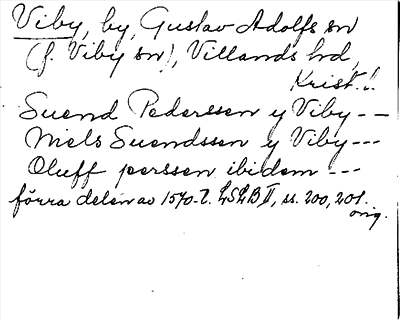 Viby, by, Gustav Adolfs sn
(f. Viby sn), Villands hd,
Krist. l.
Suend Pederssen y Viby --
Niels Suendssen y Viby ---
Oluff perssen ibidem ---
förra delen av 1570-t. LSLB II, ss. 200, 201.
orig.